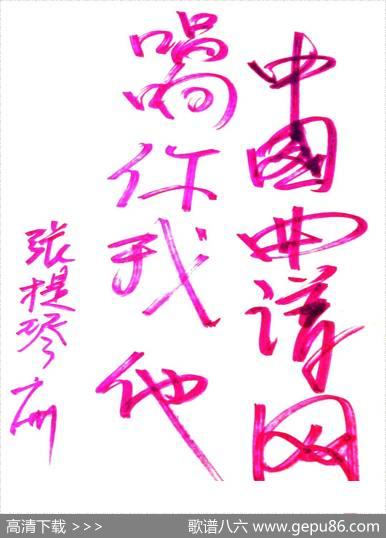 中国曲谱网
唱响你我他
张提琴
高清下载 >>>
歌谱八六 www.gepu86.com